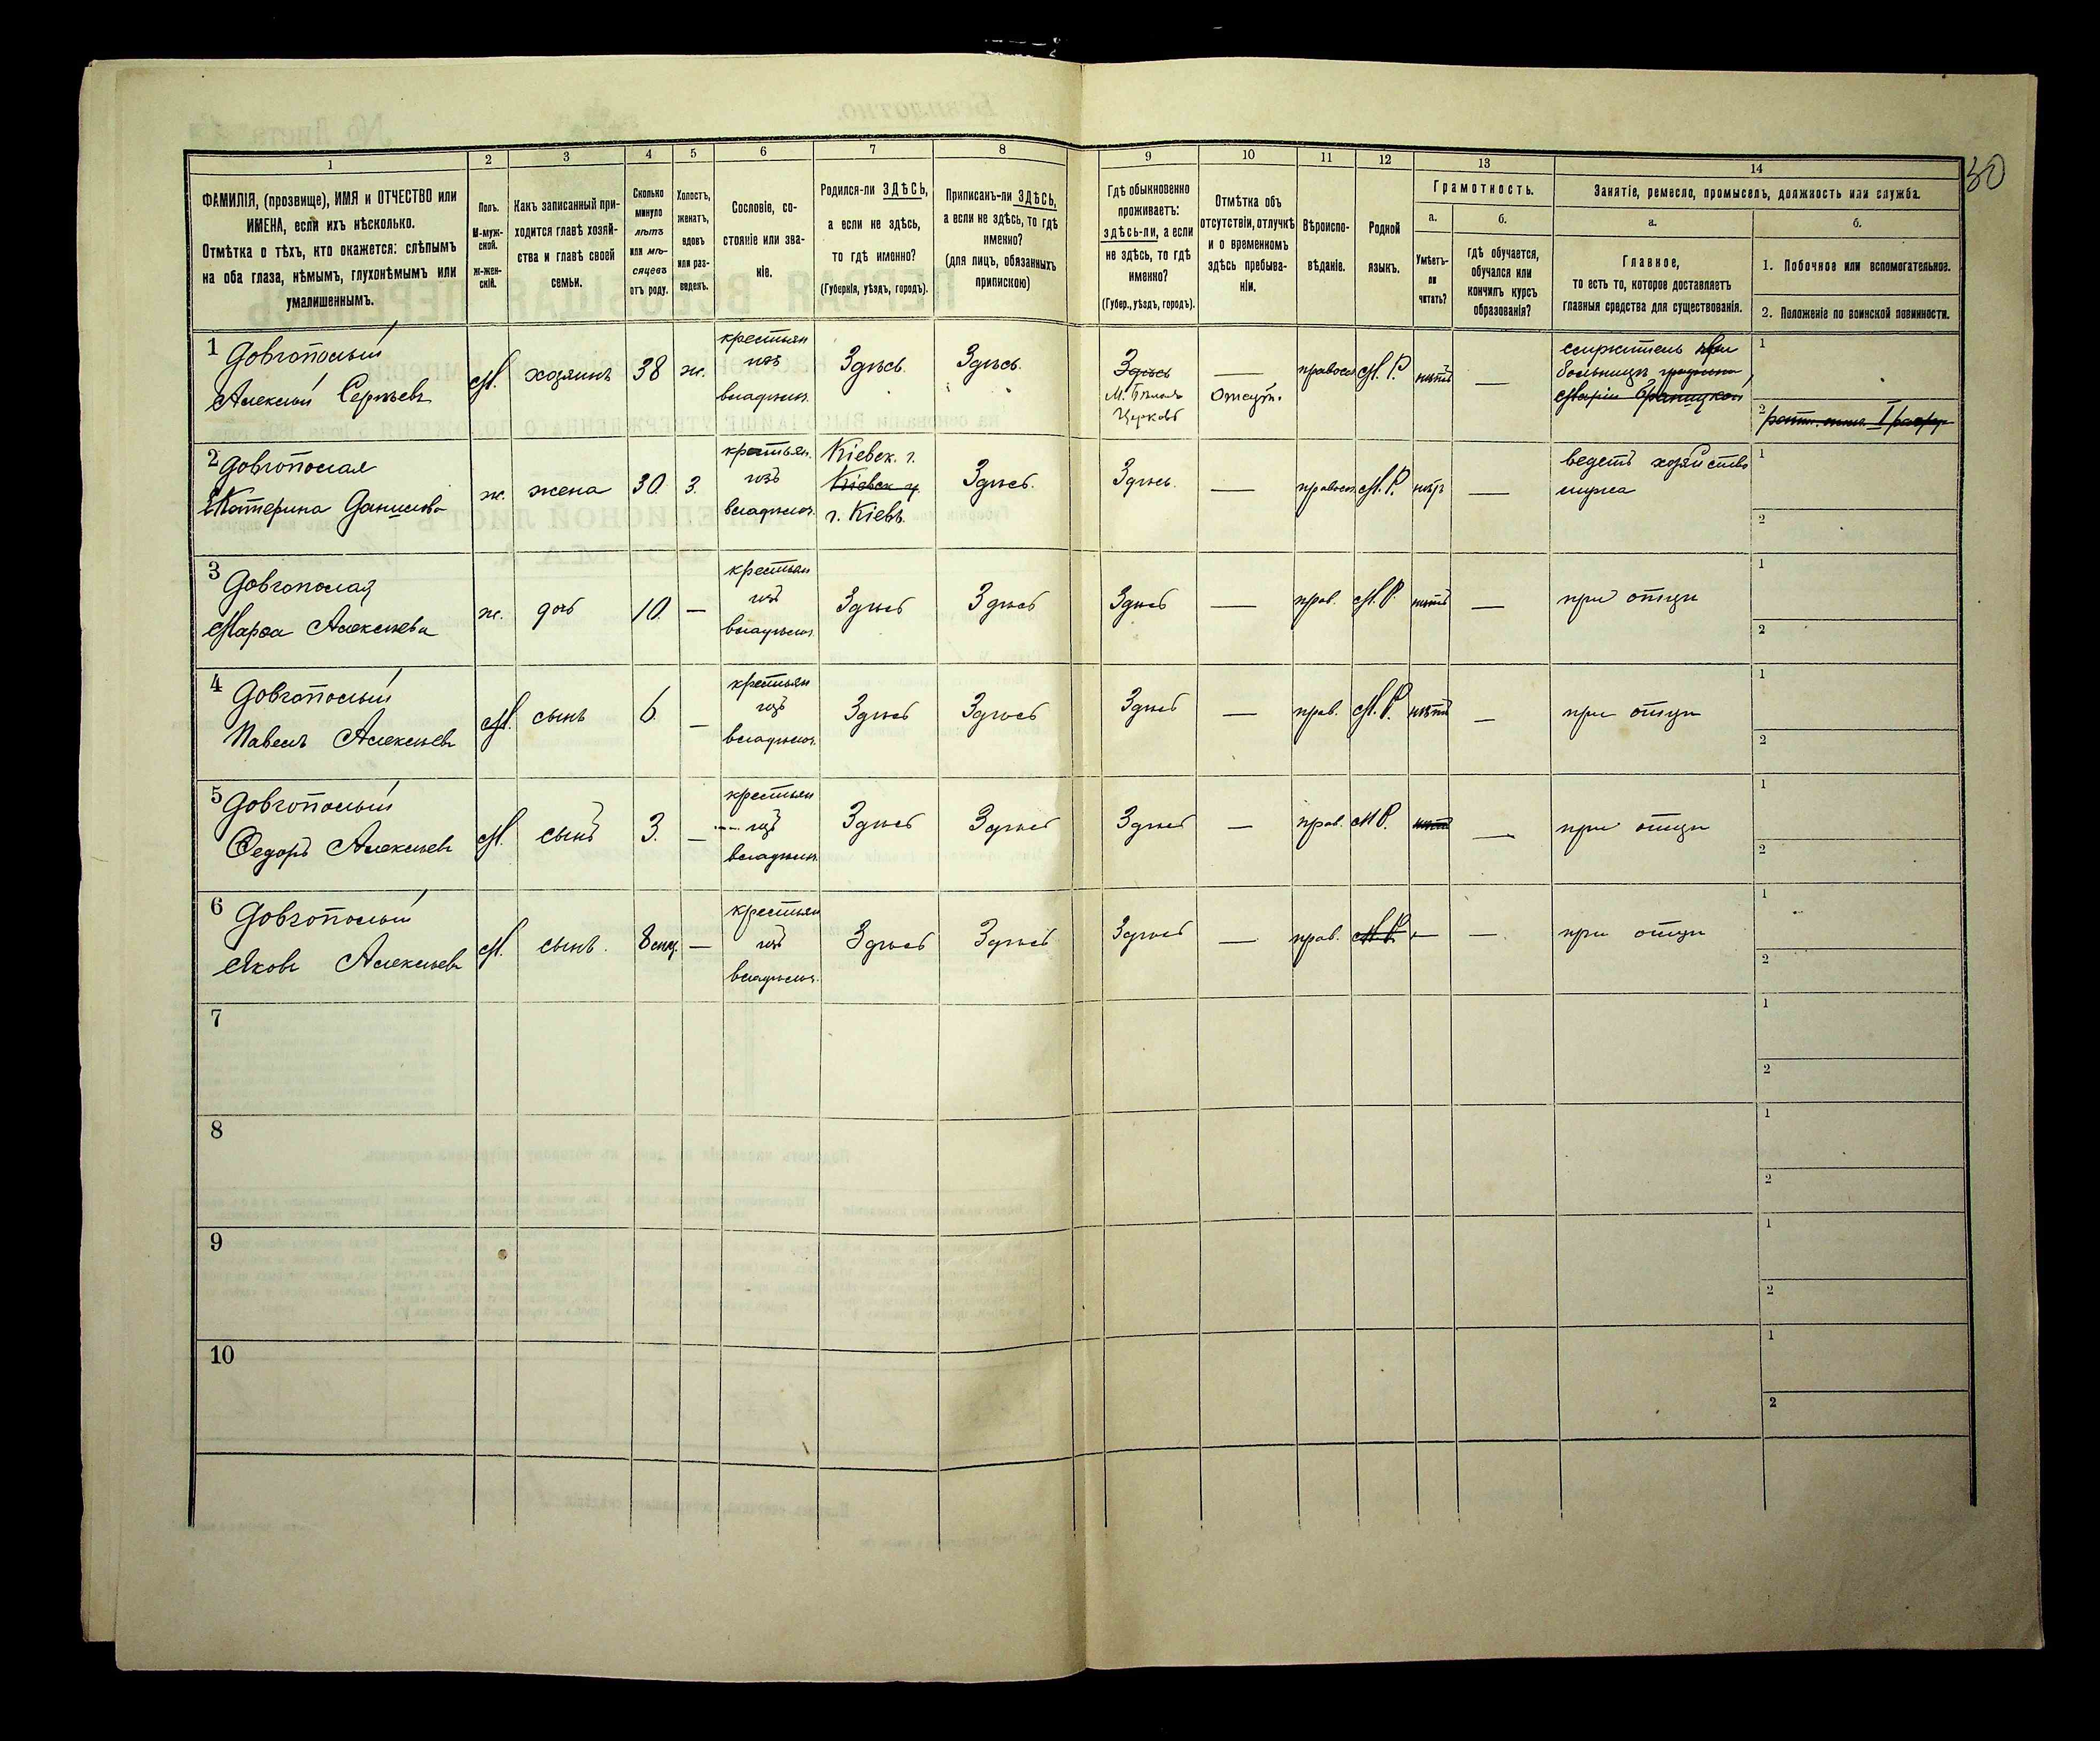 30
1 2 3 4 5 6 7 8 9 10 11 12 13 14
ФАМИЛІЯ, (прозвище), ИМЯ и ОТЧЕСТВО или
ИМЕНА, если ихъ нѣсколько.
Отмѣтка о тѣхъ, кто окажется: слѣпымъ
на оба глаза, нѣмымъ, глухонѣмымъ или
умалишеннымъ.
Полъ.
М-муж-
ской.
ж-жен-
скій.
Какъ записанный при-
ходится главѣ хозяй-
ства и главѣ своей
семьи.
Сколько
минуло
лѣтъ
или мѣ-
сяцевъ
отъ роду.
Холостъ,
женатъ,
вдовъ
или раз-
веденъ.
Сословіе, со-
стояніе или зва-
ніе.
Родился-ли ЗДѢСЬ,
а если не здѣсь,
то гдѣ именно?
(Губернія, уѣздъ, городъ).
Приписанъ-ли ЗДѢСЬ,
а если не здѣсь, то гдѣ
именно?
(для лицъ, обязанныхъ
припискою)
Гдѣ обыкновенно
проживаетъ:
здѣсь-ли, а если
не здѣсь, то гдѣ
именно?
(Губер., уѣздъ, городъ).
Отмѣтка объ
отсутствіи, отлучкѣ
и о временномъ
здѣсь пребыва-
ніи.
Вѣроиспо-
вѣданіе.
Родной
языкъ.
Грамотность.
а.
Умѣетъ-
ли
читать?
б.
Гдѣ обучается,
обучался или
кончилъ курсъ
образованія?
Занятіе, ремесло, промыселъ, должность или служба.
а.
Главное,
то есть то, которое доставляетъ
главныя средства для существованія.
б.
1. Побочное или вспомогательное.
2. Положеніе по воинской повинности.
1 Довгополый
Алексѣй Сергѣевъ
М.
хозяинъ
38
ж.
крестьян
изъ
владѣльч.
Здѣсь.
Здѣсь.
Здѣсь
М. Бѣлая
Церковь
—
Отсут.
правосл
М. Р.
нѣтъ
—
служитель при
больницѣ
Маріи Браницкой
1
2
2 Довгополая
Екатерина Данилова
ж.
жена
30
З.
крестьян.
изъ
владѣльч.
Кіевск. г.
Кіевск у.
г. Кіевъ.
Здѣсь.
Здѣсь.
—
правосл.
М. Р.
нѣтъ
—
ведетъ хозяйство
мужа
1
2
3 Довгополая
Марѳа Алексѣева
ж.
дочь
10.
—
крестьян
изъ
владѣльч.
Здѣсь
Здѣсь
Здѣсь
—
прав.
М. Р.
нѣтъ
—
при отцѣ
1
2
4 Довгополый
Павелъ Алексѣевъ
М.
сынъ
6.
—
крестьян
изъ
владѣльч.
Здѣсь
Здѣсь
Здѣсь
—
прав.
М. Р.
нѣтъ
—
при отцѣ
1
2
5 Довгополый
Ѳедоръ Алексѣевъ
М.
сынъ
3.
—
крестьян
изъ
владѣльч.
Здѣсь
Здѣсь
Здѣсь
—
прав.
М Р.
нѣтъ
—
при отцѣ
1
2
6 Довгополый
Яковъ Алексѣевъ
М.
сынъ.
8 мѣс.
—
крестьян
изъ
владѣльч.
Здѣсь
Здѣсь
Здѣсь
—
прав.
М. Р.
—
—
при отцѣ
1
2
7
1
2
8
1
2
9
1
2
10
1
2